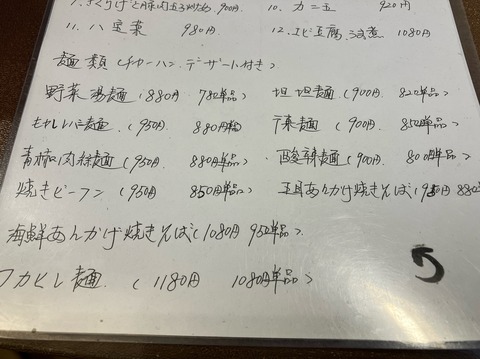 10. カニ玉 920円
11. 八宝菜 980円
12. エビ豆腐の煮 1080円
麺類(チャーハン.デザート付き)
野菜湯麺(880円 780単品)
坦坦麺(900円 820単品)
麺(950円 880円
辣麺(900円 850単品)
青椒肉絲麺(950円 880円単品)
酸辣麺(900円 800円単品)
焼きビーフン(950円 850円単品)
五目あんかけ焼きそば(980円 880
海鮮あんかけ焼きそば(1080円 950単品)
フカヒレ麺(1180円 1080円単品)